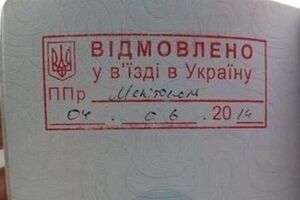 ВІДМОВЛЕНО
у в'їзді в Україну
ППр Мелітополь
04. 06. 2014